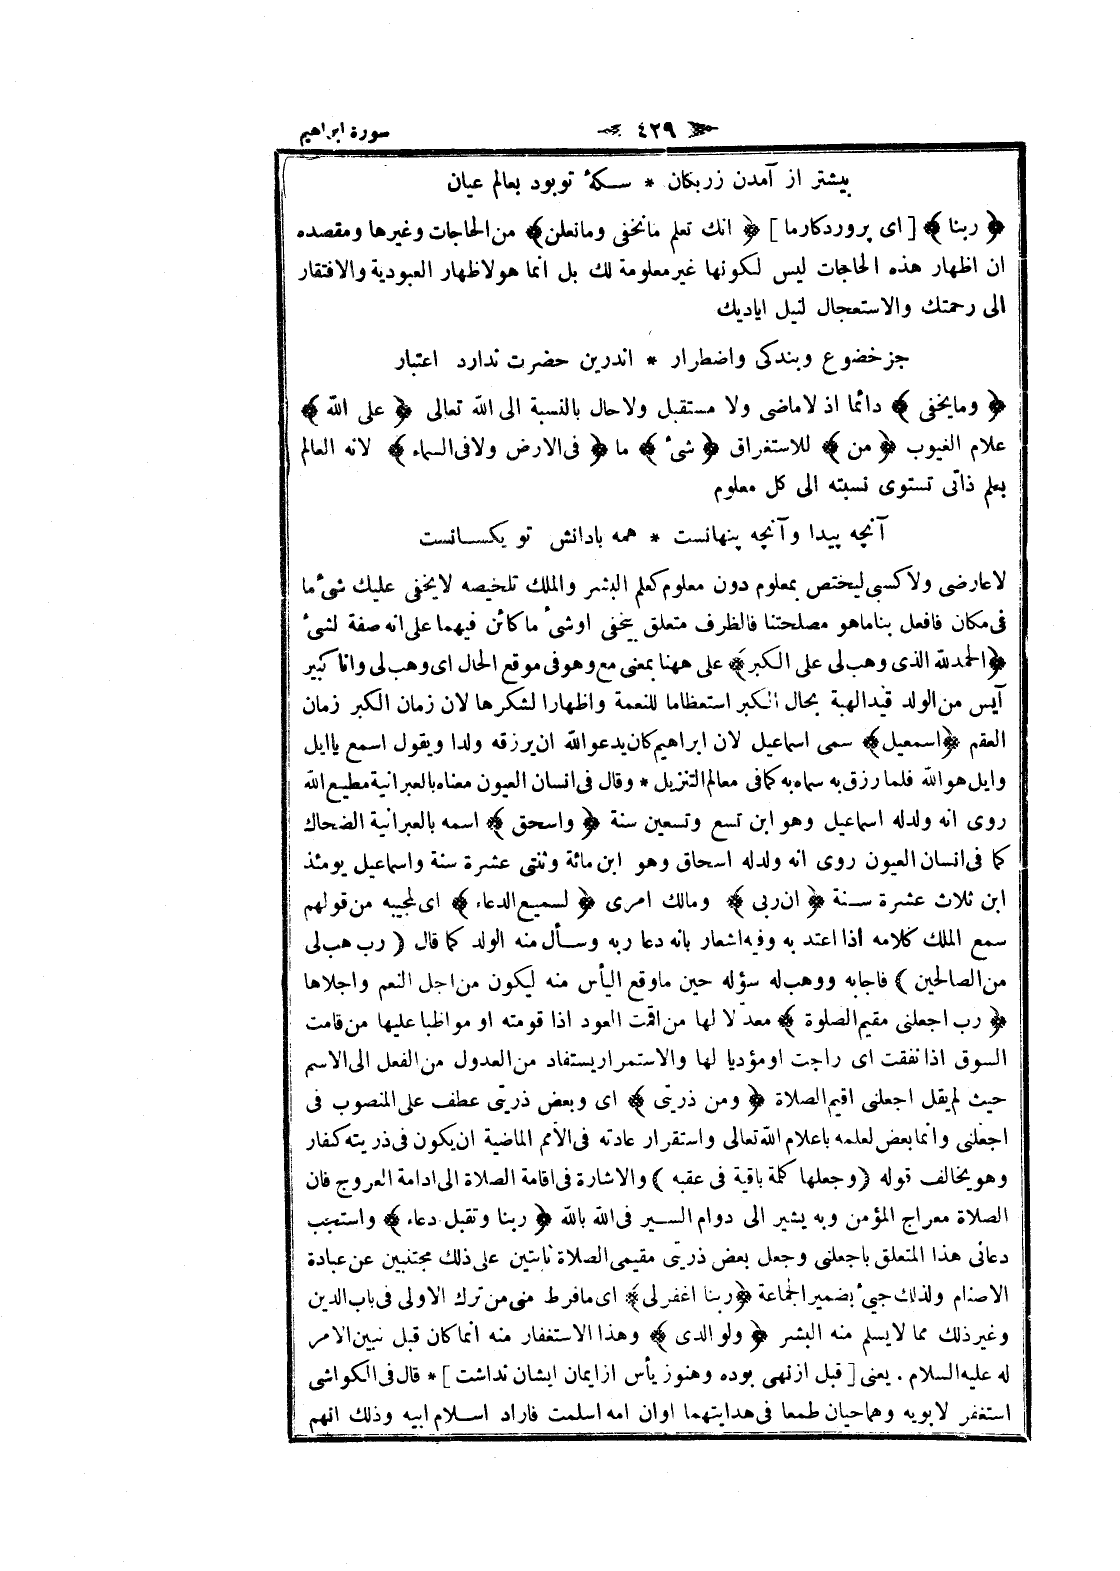 سورة ابراهيم
٤٢٩
بيشتر از آمدن زربكان * سكهٔ توبود بعالم عيان
﴿ ربنا ﴾ [ اى پروردكارما ] ﴿ انك تعلم مانخفى ومانعلن ﴾ من الحاجات وغيرها ومقصده
ان اظهار هذه الحاجات ليس لكونها غيرمعلومة لك بل انما هولاظهار العبودية والافتقار
الى رحمتك والاستعجال لنيل اياديك
جزخضوع وبندكى واضطرار * اندرين حضرت ندارد اعتبار
﴿ ومايخفى ﴾ دائما اذ لاماضى ولا مستقبل ولاحال بالنسبة الى الله تعالى ﴿ على الله ﴾
علام الغيوب ﴿ من ﴾ للاستغراق ﴿ شئ ﴾ ما ﴿ فى الارض ولافى السماء ﴾ لانه العالم
بعلم ذاتى تستوى نسبته الى كل معلوم
آنچه پيدا وآنچه پنهانست * همه بادانش تو يكسانست
لاعارضى ولاكسبى ليختص بمعلوم دون معلوم كعلم البشر والملك تلخيصه لايخفى عليك شئ ما
فى مكان فافعل بناماهو مصلحتنا فالظرف متعلق بيخفى اوشئ ماكائن فيهما على انه صفة لشئ
﴿الحمدلله الذى وهب لى على الكبر﴾ على ههنا بمعنى مع وهو فى موقع الحال اى وهب لى وانا كبير
آيس من الولد قيدالهبة بحال الكبر استعظاما للنعمة واظهارا لشكرها لان زمان الكبر زمان
العقم ﴿اسمعيل﴾ سمى اسماعيل لان ابراهيم كان يدعوالله ان يرزقه ولدا ويقول اسمع ياايل
وايل هوالله فلما رزق به سماه به كمافى معالم التنزيل * وقال فى انسان العيون معناه بالعبرانية مطيع الله
روى انه ولدله اسماعيل وهو ابن تسع وتسعين سنة ﴿ واسحق ﴾ اسمه بالعبرانية الضحاك
كما فى انسان العيون روى انه ولدله اسحاق وهو ابن مائة وثنتى عشرة سنة واسماعيل يومئذ
ابن ثلاث عشرة سنة ﴿ ان ربى ﴾ ومالك امرى ﴿ لسميع الدعاء ﴾ اى لمجيبه من قولهم
سمع الملك كلامه اذا اعتد به وفيه اشعار بانه دعا ربه وسأل منه الولد كما قال ( رب هب لى
من الصالحين ) فاجابه ووهب له سؤله حين ماوقع اليأس منه ليكون من اجل النعم واجلاها
﴿ رب اجعلنى مقيم الصلوة ﴾ معدّلا لها من اقمت العود اذا قومته او مواظبا عليها من قامت
السوق اذا نفقت اى راجت اومؤديا لها والاستمرار يستفاد من العدول من الفعل الى الاسم
حيث لم يقل اجعلنى اقيم الصلاة ﴿ ومن ذريتى ﴾ اى وبعض ذريتى عطف على المنصوب فى
اجعلنى وانما بعض لعلمه باعلام الله تعالى واستقرار عادته فى الامم الماضية ان يكون فى ذريته كفار
وهويخالف قوله ( وجعلها كلمة باقية فى عقبه ) والاشارة فى اقامة الصلاة الى ادامة العروج فان
الصلاة معراج المؤمن وبه يشير الى دوام السير فى الله بالله ﴿ ربنا وتقبل دعاء ﴾ واستجب
دعائى هذا المتعلق باجعلنى وجعل بعض ذريتى مقيمى الصلاة ثابتين على ذلك مجتنبين عن عبادة
الاصنام ولذلك جيئ بضمير الجماعة ﴿ربنا اغفرلى﴾ اى مافرط منى من ترك الاولى فى باب الدين
وغيرذلك مما لايسلم منه البشر ﴿ ولوالدى ﴾ وهذا الاستغفار منه انما كان قبل تبين الامر
له عليه السلام . يعنى [ قبل ازنهى بوده وهنوز يأس از ايمان ايشان نداشت ] * قال فى الكواشى
استغفر لابويه وهما حيان طمعا فى هدايتهما اوان امه اسلمت فاراد اسلام ابيه وذلك انهم